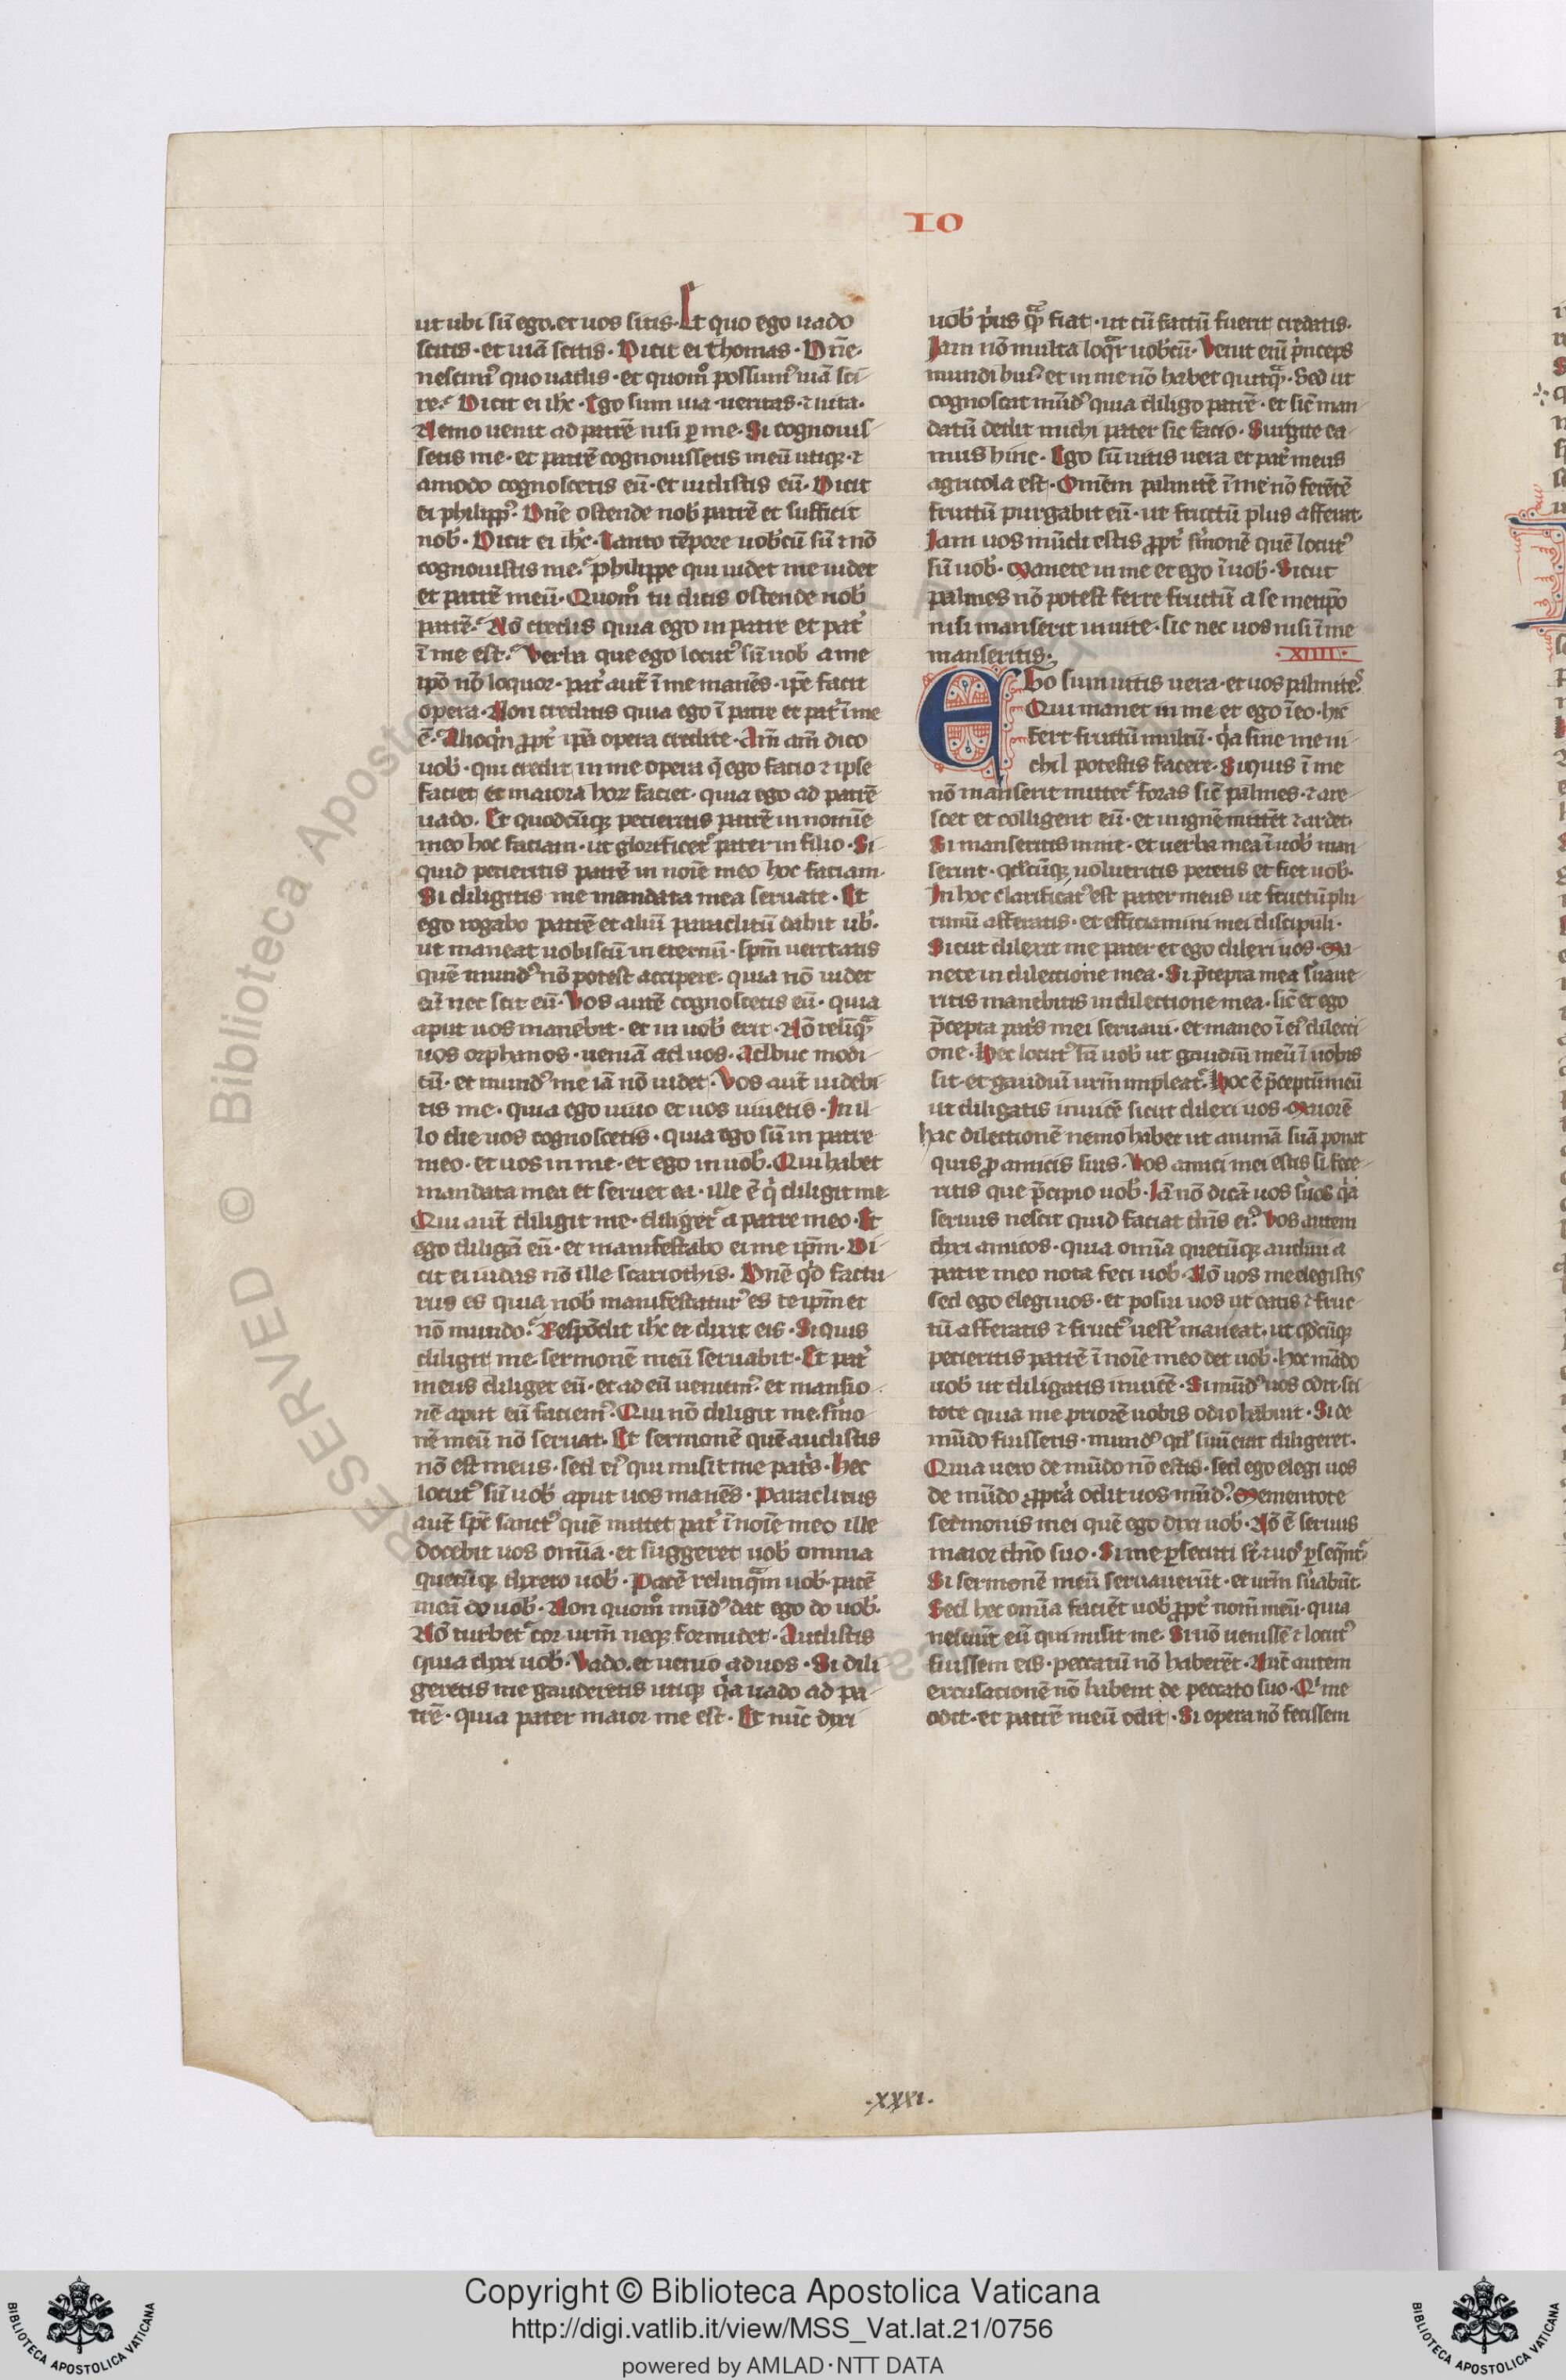 IO
ut ubi sū ego. et uos sitis. Et quo ego uado
scitis · et uiā scitis · Dicit ei thomas · Dn̄e ·
nescimꝰ quo uadis · et quomͦ possumꝰ uiā sci-
re · Dicit ei ih̄c · Ego sum uia · ueritas · ⁊ uita ·
Nemo uenit ad patrē nisi ꝑ me · Si cognouis-
setis me · et patrē cognouissetis meū utiqꝫ · ⁊
amodo cognoscetis eū · et uidistis eū · Dicit
ei philippꝰ · Dn̄e ostende nob̄ patrē et sufficit
nob̄ · Dicit ei ih̄c · Tanto tēpore uob̄cū sū ⁊ nō
cognouistis me · philippe qui uidet me uidet
et patrē meū · Quomͦ tu dicis ostende nob̄
patrē · Nō credis quia ego in patre et pat̓
ī me est · Verba que ego locutꝰ sū uob̄ a me
ip̄o nō loquor · pat̓ aut̄ ī me manēs · ip̄e facit
opera · Non creditis quia ego ī patre et pat̓ ī me
ē · Alioqn̄ ꝓpt̓ ip̄a opera credite · Am̄ am̄ dico
uob̄ · qui credit in me opera q̄ ego facio ⁊ ipse
faciet et maiora hoꝝ faciet · quia ego ad patrē
uado · Et quodcūqꝫ petieritis patrē in nomīe
meo hoc faciam · ut glorificet᷑ pater in filio · Si
quid petieritis patrē in noīe meo hoc faciam ·
Si diligitis me mandata mea seruate · Et
ego rogabo patrē et aliū paraclitū dabit ub̄ ·
ut maneat uobiscū in eternū · sp̄m ueritatis
quē mundꝰ nō potest accipere · quia nō uidet
eū nec scit eū · Vos autē cognoscetis eū · quia
aput uos manebit · et in uob̄ erit · Nō relīqᷓ
uos orphanos · ueniā ad uos · Adhuc modi-
cū · et mundꝰ me iā nō uidet · Vos aut̄ uidebi-
tis me · quia ego uiuo et uos uiuetis · In il-
lo die uos cognoscetis · quia ego sū in patre
meo · et uos in me · et ego in uob̄ · Qui habet
mandata mea et seruet ea · ille ē q̇ diligit me ·
Qui aut̄ diligit me · diliget᷑ a patre meo · Et
ego diligā eū · et manifestabo ei me ip̄m · Di-
cit ei iudas nō ille scariothis · Dn̄e qd̄ factu-
rus es quia nob̄ manifestaturꝰ es te ip̄m et
nō mundo · Respōdit ih̄c et dixit eis · Si quis
diligit me sermonē meū seruabit · Et pat̓
meus diliget eū · et ad eū uenimꝰ · et mansio-
nē aput eū faciemꝰ · Qui nō diligit me · s̓mo-
nē meū nō seruat · Et sermonē quē audistis
nō est meus · sed eiꝰ qui misit me pat̓s · Hec
locutꝰ sū uob̄ aput uos manēs · Paraclitus
aut̄ sp̄c sanctꝰ quē mittet pat̓ ī noīe meo ille
docebit uos omīa · et suggeret uob̄ omnia
quecūqꝫ dixero uob̄ · Pacē relinqᷓm uob̄ · pacē
meā do uob̄ · Non quomͦ mūdꝰ dat ego do uob̄ ·
Nō turbet᷑ cor ur̄m neqꝫ formidet · Audistis
quia dixi uob̄ · Vado · et uenio ad uos · Si dili-
geretis me gauderetis utiqꝫ q̓a uado ad pa-
trē · quia pater maior me est · Et nūc dixi
uob̄ p̓us qᷓ fiat · ut cū factū fuerit credatis ·
Iam nō multa loqᷓr uob̄cū · Venit enī p̓nceps
mundi huiꝰ et in me nō habet quicqᷓ · Sed ut
cognoscat mūdꝰ quia diligo patrē · et sic̄ man-
datū dedit michi pater sic facio · Surgite ea-
mus hinc · Ego sū uitis uera et pat̓ meus
agricola est · Omēm palmitē ī me nō ferētē
fructū purgabit eū · ut fructū plus afferat ·
Iam uos mūdi estis ꝓpt̓ s̓monē quē locutꝰ
sū uob̄ · Manete in me et ego ī uob̄ · Sicut
palmes nō potest ferre fructū a se metip̄o
nisi manserit in uite · sic nec uos nisi ī me
manseritis ·
· XIIII ·
Ego sum uitis uera · et uos palmites ·
Qui manet in me et ego ī eo · hic
fert fructū multū · q̓a sine me ni-
chil potestis facere · Siquis ī me
nō manserit mittet᷑ foras sic̄ palmes · ⁊ are-
scet et colligent eū · et in ignē mittēt ⁊ ardet ·
Si manseritis in me · et uerba mea ī uob̄ man-
serint · qd̄cūqꝫ uolueritis petetis et fiet uob̄ ·
In hoc clarificatꝰ est pater meus ut fructū plu-
rimū afferatis · et efficiamini mei discipuli ·
Sicut dilexit me pater et ego dilexi uos · Ma-
nete in dilectione mea · Si p̄cepta mea s̓uaue-
ritis manebitis in dilectione mea · sic̄ et ego
p̄cepta pat̓s mei seruaui · et maneo ī eiꝰ dilecti-
one · Hec locutꝰ sū uob̄ ut gaudiū meū ī uobis
sit · et gaudiū ur̄m impleat᷑ · Hoc ē p̄ceptū meū
ut diligatis inuicē sicut dilexi uos · Maiorē
hac dilectionē nemo habet ut animā suā ponat
quis ꝓ amicis suis · Vos amici mei estis si fece-
ritis que p̄cipio uob̄ · Iā nō dicā uos s̓uos q̓a
seruus nescit quid faciat dn̄s eiꝰ · Vos autem
dixi amicos · quia omīa quecūqꝫ audiui a
patre meo nota feci uob̄ · Nō uos me elegistis
sed ego elegi uos · et posui uos ut eatis ⁊ fruc-
tū afferatis ⁊ fructꝰ uest̓ maneat · ut qd̄cūqꝫ
petieritis patrē ī noīe meo det uob̄ · hec mādo
uob̄ ut diligatis inuicē · Si mūdꝰ uos odit · sci-
tote quia me priorē uobis odio habuit · Si de
mūdo fuissetis · mundꝰ qd̄ suū erat diligeret ·
Quia uero de mūdo nō estis · sed ego elegi uos
de mūdo ꝓpt̓a odit uos mūdꝰ · Mementote
sermonis mei quē ego dixi uob̄ · Nō ē seruus
maior dn̄o suo · Si me ꝑsecuti st̄ · ⁊ uos ꝑseqn̄t᷑ ·
Si sermonē meū seruauerūt · et ur̄m s̓uabūt ·
Sed hec omīa faciēt uob̄ ꝓpt̓ nom̄ meū · quia
nesciūt eū qui misit me · Si nō uenissē ⁊ locutꝰ
fuissem eis · peccatū nō haberēt · Nūc autem
excusationē nō habent de peccato suo · Qⁱ me
odit · et patrē meū odit · Si opera nō fecissem
· xxxi ·
RESERVED © Biblioteca Apostolica
Copyright © Biblioteca Apostolica Vaticana
http://digi.vatlib.it/view/MSS_Vat.lat.21/0756
powered by AMLAD·NTT DATA
BIBLIOTECA APOSTOLICA VATICANA
BIBLIOTECA APOSTOLICA VATICANA